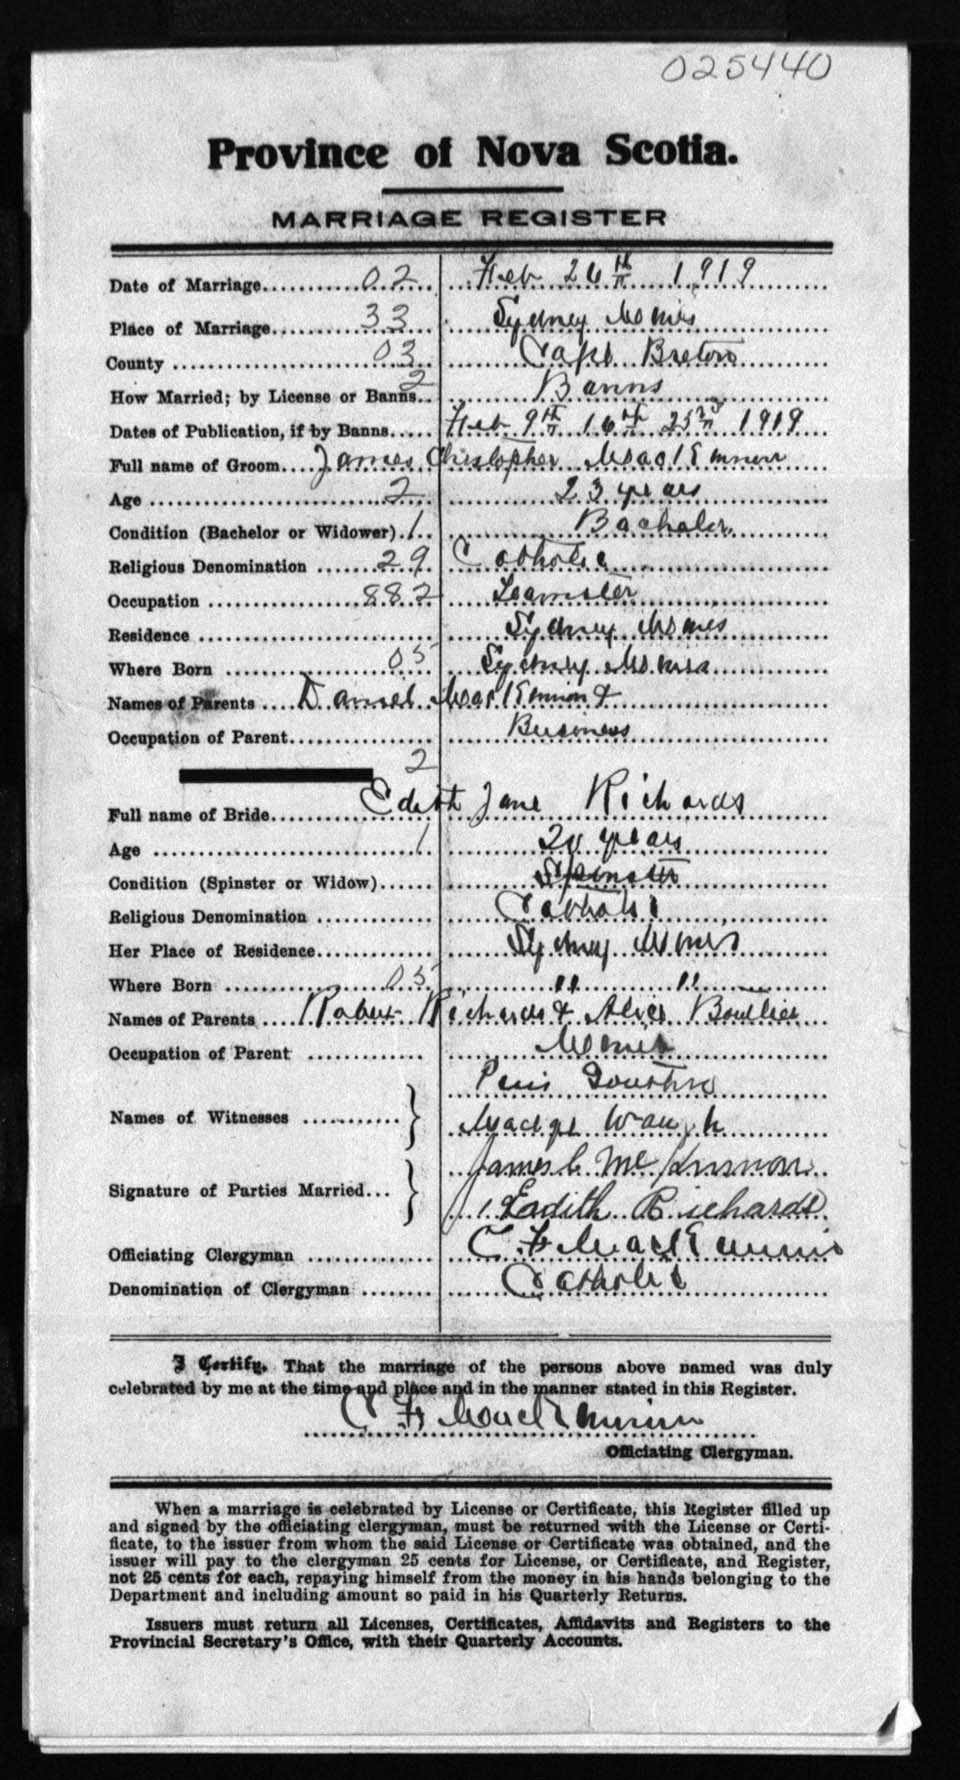 025440
Province of Nova Scotia.
MARRIAGE REGISTER
Date of Marriage 02 Feb 26th 1919
Place of Marriage 33 Sydney Mines
County 03 Cape Breton
How Married; by License or Banns 2 Banns
Dates of Publication, if by Banns Feb 9th 16th 23rd 1919
Full name of Groom James Christopher MacKinnon
Age 2 23 years
Condition (Bachelor or Widower) 1 Bachelor
Religious Denomination 29 Catholic
Occupation 882 Teamster
Residence Sydney Mines
Where Born 05 Sydney Mines
Names of Parents Daniel MacKinnon &
Occupation of Parent Business
2
Full name of Bride Edith Jane Richards
Age 1 20 years
Condition (Spinster or Widow) Spinster
Religious Denomination Catholic
Her Place of Residence Sydney Mines
Where Born 05 " "
Names of Parents Robert Richards &
Occupation of Parent
Names of Witnesses
Madge Waugh
James C McKinnon
Signature of Parties Married
Eadith Richards
Officiating Clergyman C F MacKinnon
Denomination of Clergyman Catholic
I Certify, That the marriage of the persons above named was duly
celebrated by me at the time and place and in the manner stated in this Register.
C F MacKinnon
Officiating Clergyman.
When a marriage is celebrated by License or Certificate, this Register filled up
and signed by the officiating clergyman, must be returned with the License or Certi-
ficate, to the issuer from whom the said License or Certificate was obtained, and the
issuer will pay to the clergyman 25 cents for License, or Certificate, and Register,
not 25 cents for each, repaying himself from the money in his hands belonging to the
Department and including amount so paid in his Quarterly Returns.
Issuers must return all Licenses, Certificates, Affidavits and Registers to the
Provincial Secretary's Office, with their Quarterly Accounts.